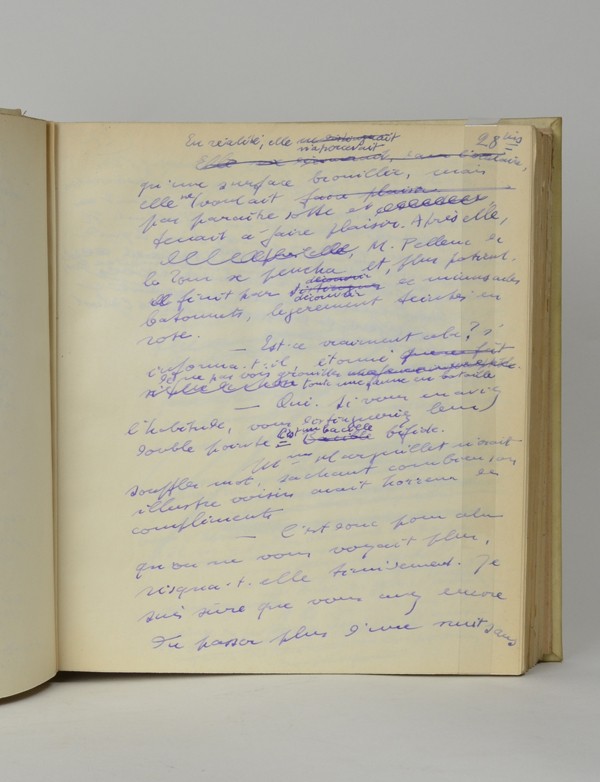 28 bis
En réalité, elle
n'apercevait
qu'une surface brouillée, mais
elle ne voulait faire plaisir
pas paraître sotte et
tenait à faire plaisir. Après elle,
M. Pellenc
la Tour se pencha et, plus patient,
finit par
découvrir
de minuscules
bâtonnets, légèrement teintés en
rose.
— Est-ce vraiment cela? s'
informa-t-il, étonné.
toute une faune en bataille
— Oui. Si vous en aviez
l'habitude, vous distingueriez leur
double pointe
bifide.
Mme Marguillet n'osait
souffler mot, sachant combien son
illustre voisin avait horreur de
compliments
— C'est donc pour cela
qu'on ne vous voyait plus,
risqua-t-elle timidement. Je
suis sûre que vous avez encore
dû passer plus d'une nuit sans